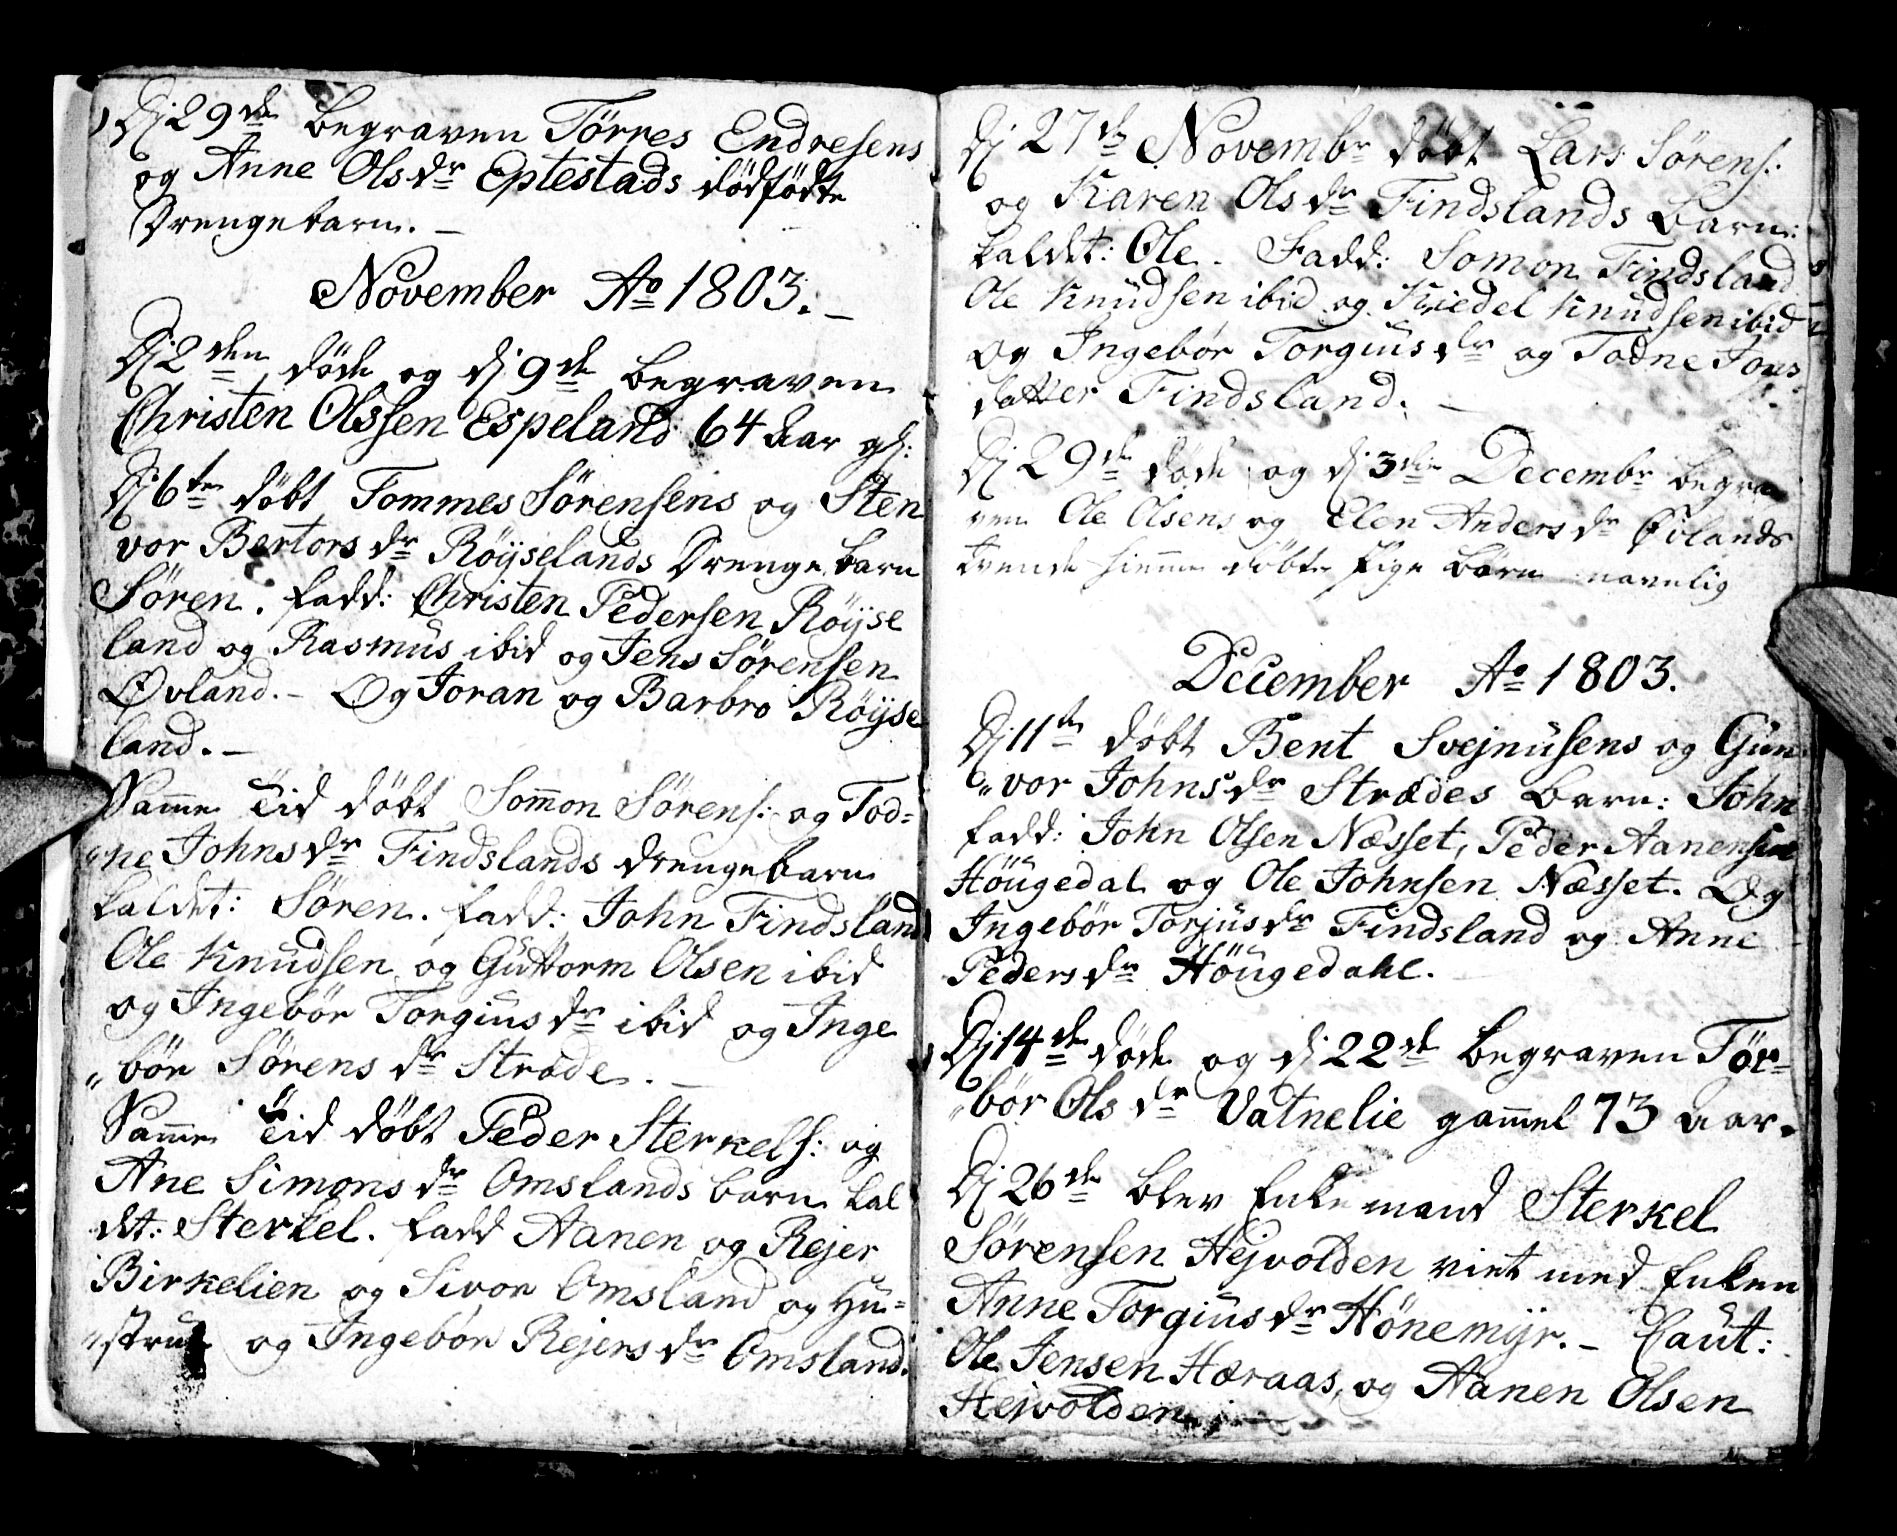 Dj 29de begraven Törres Endresens
og Anne Olsdr Eptestads dödfödte
Drengebarn. –
November Ao 1803. –
Dj 2den döde og dj 9de begraven
Christen Olssen Espeland 64 Aar gl:
Dj 6te döbt Tommes Sörensens og Sten
vor Bertors dr Röÿselands Drenge barn
Sören. fadd: Christen Pedersen Röÿse
land og Rasmus ibid og Jens Sörensen
Øvland. – Og Joran og Barbro Röÿse
land. –
Samme Tid döbt Somon Sörens: og Tod=
„ne Johnsdr Findslands drengebarn
kaldet: Sören. fadd: John Findsland
Ole Knudsen og Guttorm Olsen ibid
og Ingebör Torgiusdr ibid og Inge
„bör Sörens dr Stræde. –
Samme Tid döbt Peder Sterkels: og
Ane Simons dr Omslands barn kal
det: Sterkel. fadd Aanen og Rejer
Birkelien og Sivor Omsland og Hu=
„strue og Ingebör Rejersdr Omsland.
Dj 27de Novembr döbt Lars Sörens:
og Karen Olsdr Findslands barn:
kaldet: Ole. Fadd: Somon Findsland
Ole Knudsen ibid og Kiedel Knudsen ibid
og Ingebör Torgius dr og Todne Jons
datter Findsland. –
Dj 29de döde og dj 3die Decembr begra
ven Ole Olsens og Elen Anders dr Øilands
tvende hiemme döbte Pige börn navnlig
December Ao 1803.
Dj 11te döbt Bent Svejnusens og Gun
„vor Johnsdr Strædes barn: John
fadd: John Olsen Næsset, Peder Aanensen
Höugedal og Ole Johnsen Næsset. Og
Ingebör Torjusdr Findsland og Anne
Pedersdr Höugedahl.
Dj 14de döde og dj 22de begraven Tör=
„bör Ols dr Vatnelie gammel 73 aar.
Dj 26de blev Enkemand Sterkel
Sörensen Hejvolden viet med Enken
Anne Torgiusdr Hönemÿr. – Caut:
Ole Jensen Hæraas, og Aanen Olsen
Hejvolden. –